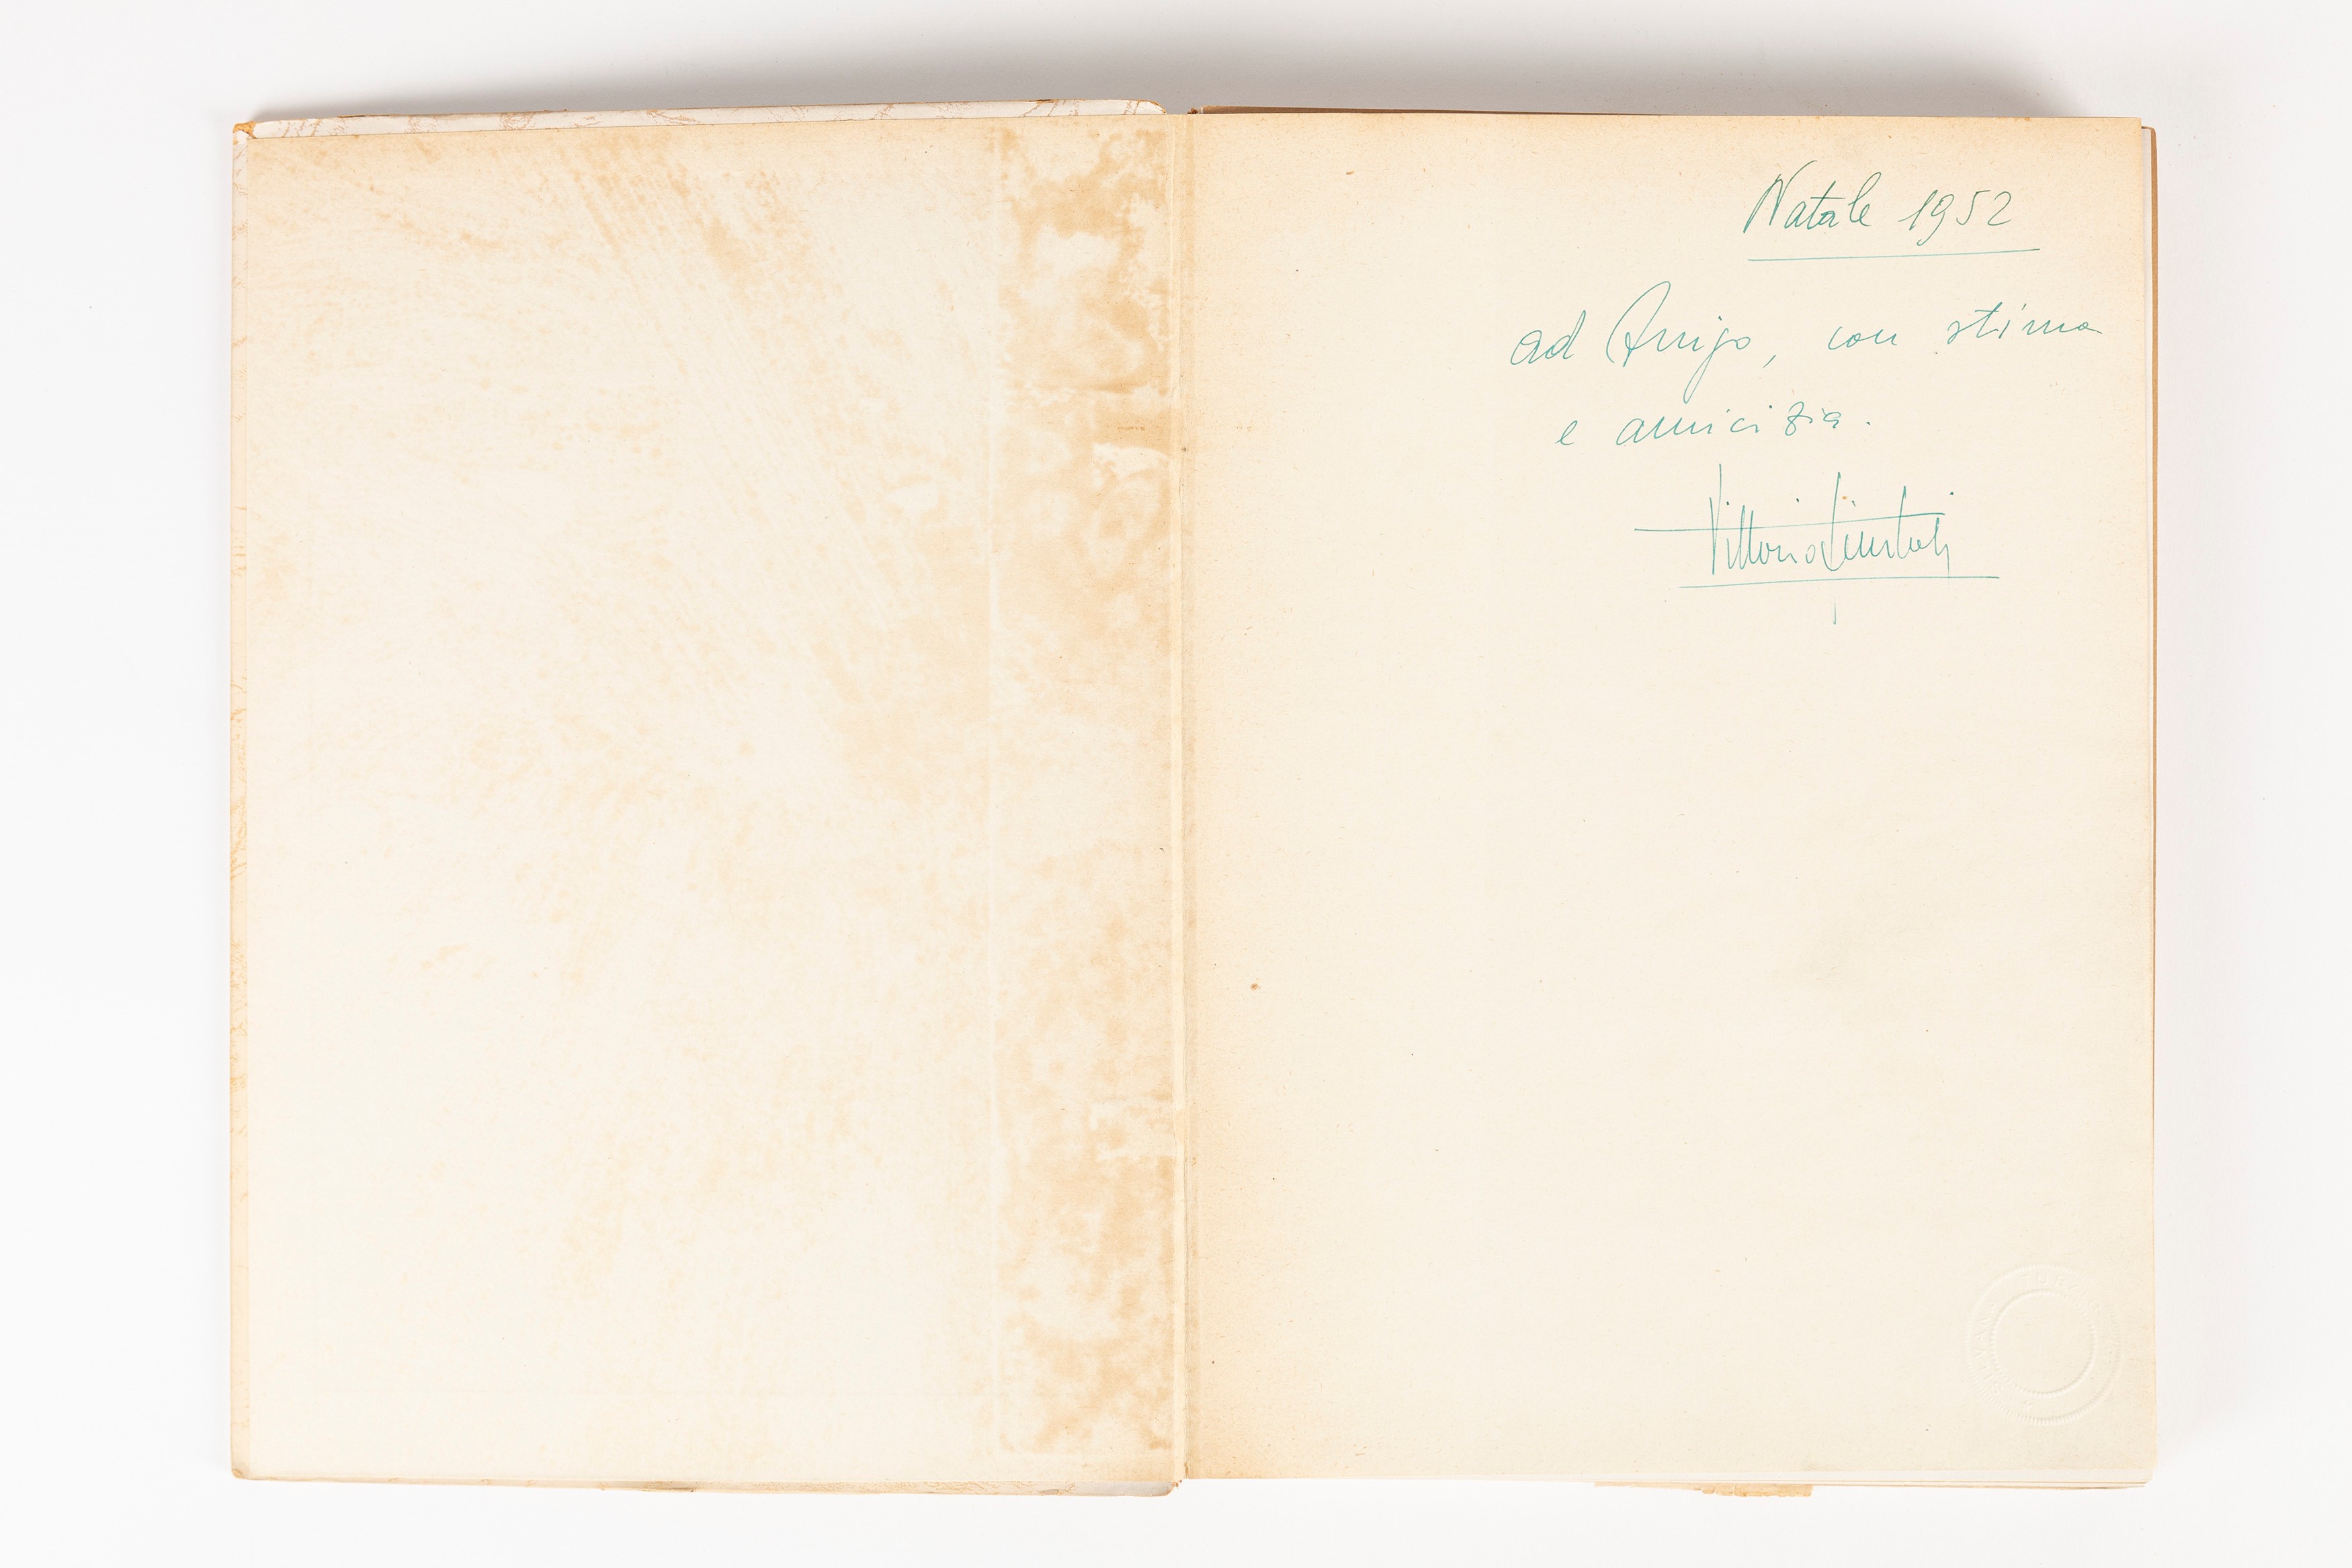 Natale 1952
ad Arrigo, con stima
e amicizia.
Vittorio